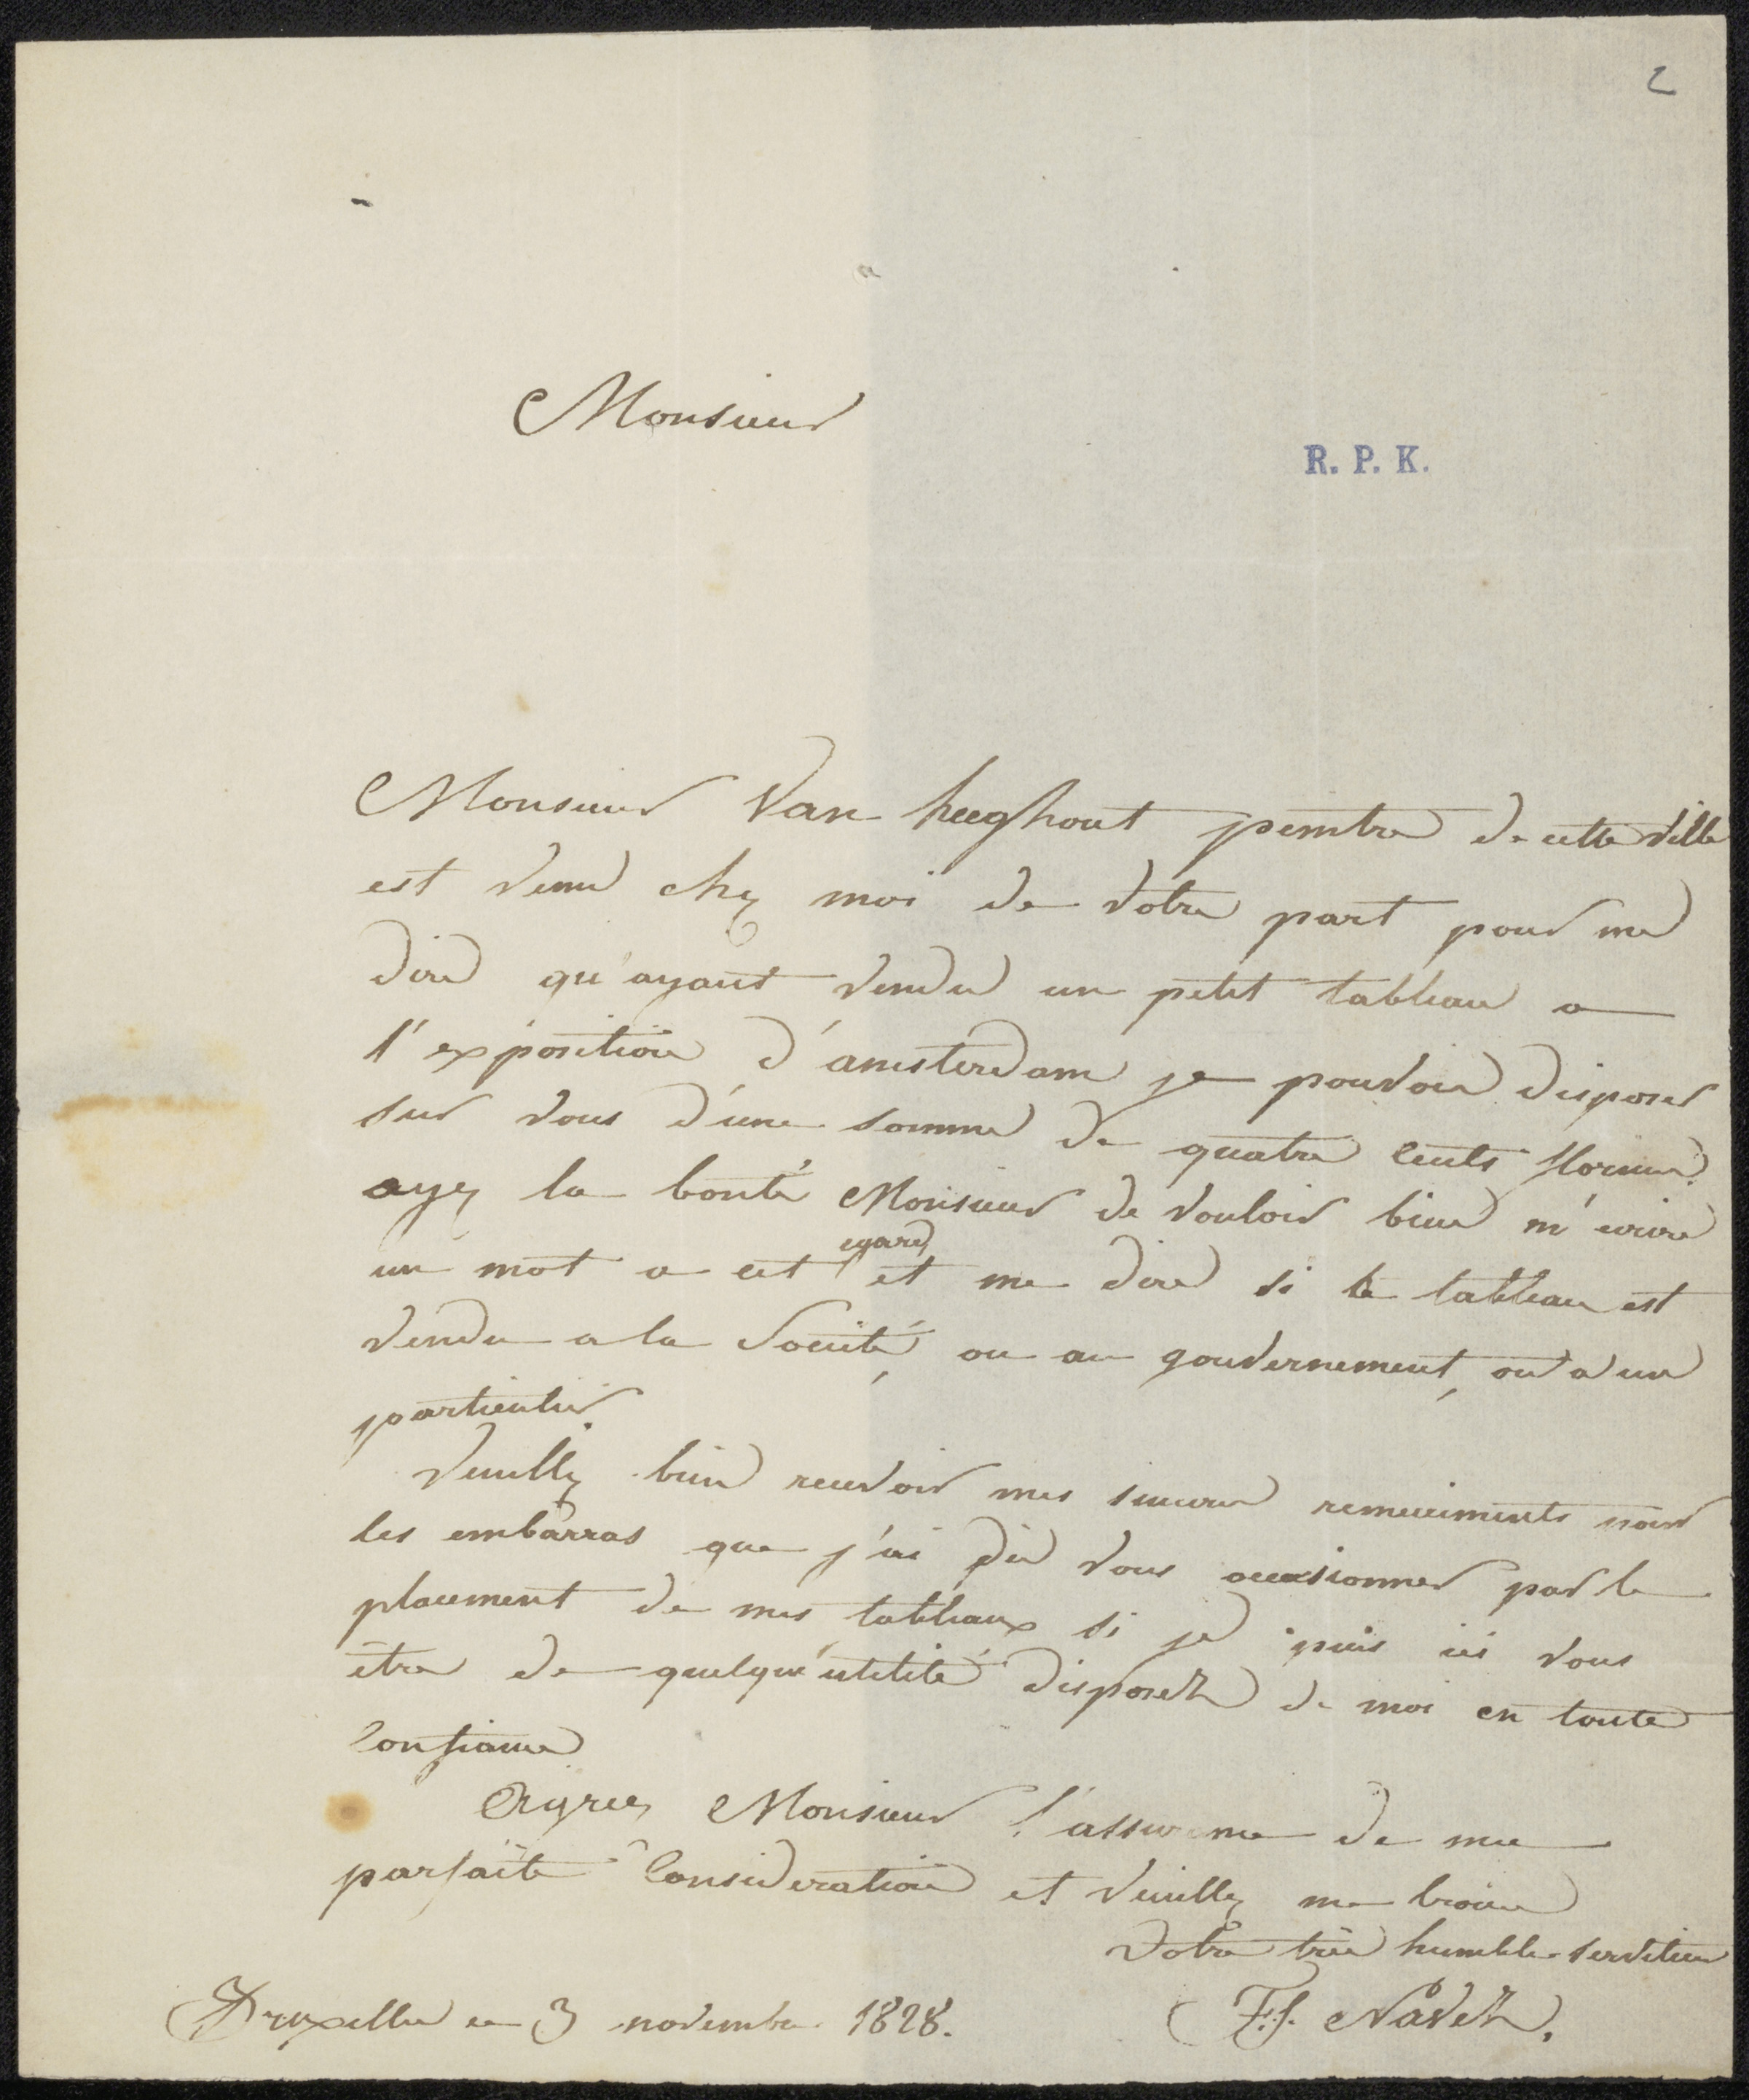 2
Monsieur
R. P. K.
Monsieur Van heeghout peintre de cette ville
est venu chez moi de votre part pour me
dire qu'ayant vendu un petit tableau a
l'exposition d'amsterdam je pouvois disposer
sur vous d'une somme de quatre cents florins.
ayez la bonté Monsieur de vouloir bien m'ecrire
un mot a cet egard et me dire si le tableau est
vendu a la Société, ou au gouvernement, ou a un
particulier.
Veuillez bien recevoir mes sinceres remerciments pour
les embarras que j'ai du vous occasionner par le
placement de mes tableaux si je puis ici vous
être de quelqu'utilité disposez de moi en toute
confiance
Agréez Monsieur l'assurance de ma
parfaite Consideration et veuillez me croire
Votre très humble serviteur
Bruxelles ce 3 novembre 1828.
F. J. Navez.